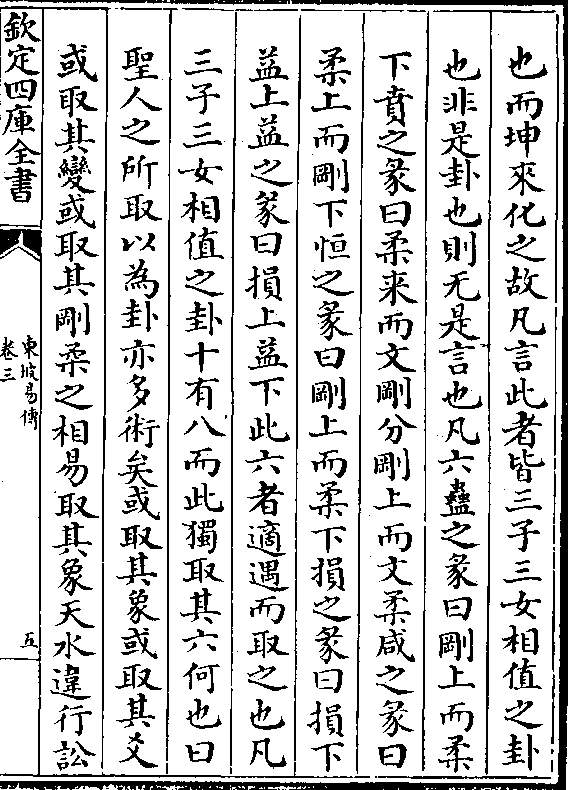 也而坤來化之故凡言此者皆三子三女相值之卦
也非是卦也則无是言也凡六蠱之彖曰剛上而柔
下賁之彖曰柔来而文剛分剛上而文柔咸之彖曰
柔上而剛下恒之彖曰剛上而柔下損之彖曰損下
益上益之彖曰損上益下此六者適遇而取之也凡
三子三女相值之卦十有八而此獨取其六何也曰
聖人之所取以為卦亦多術矣或取其象或取其爻
或取其變或取其剛柔之相易取其象天水違行訟
欽定四庫全書
東坡易傳
卷三
五